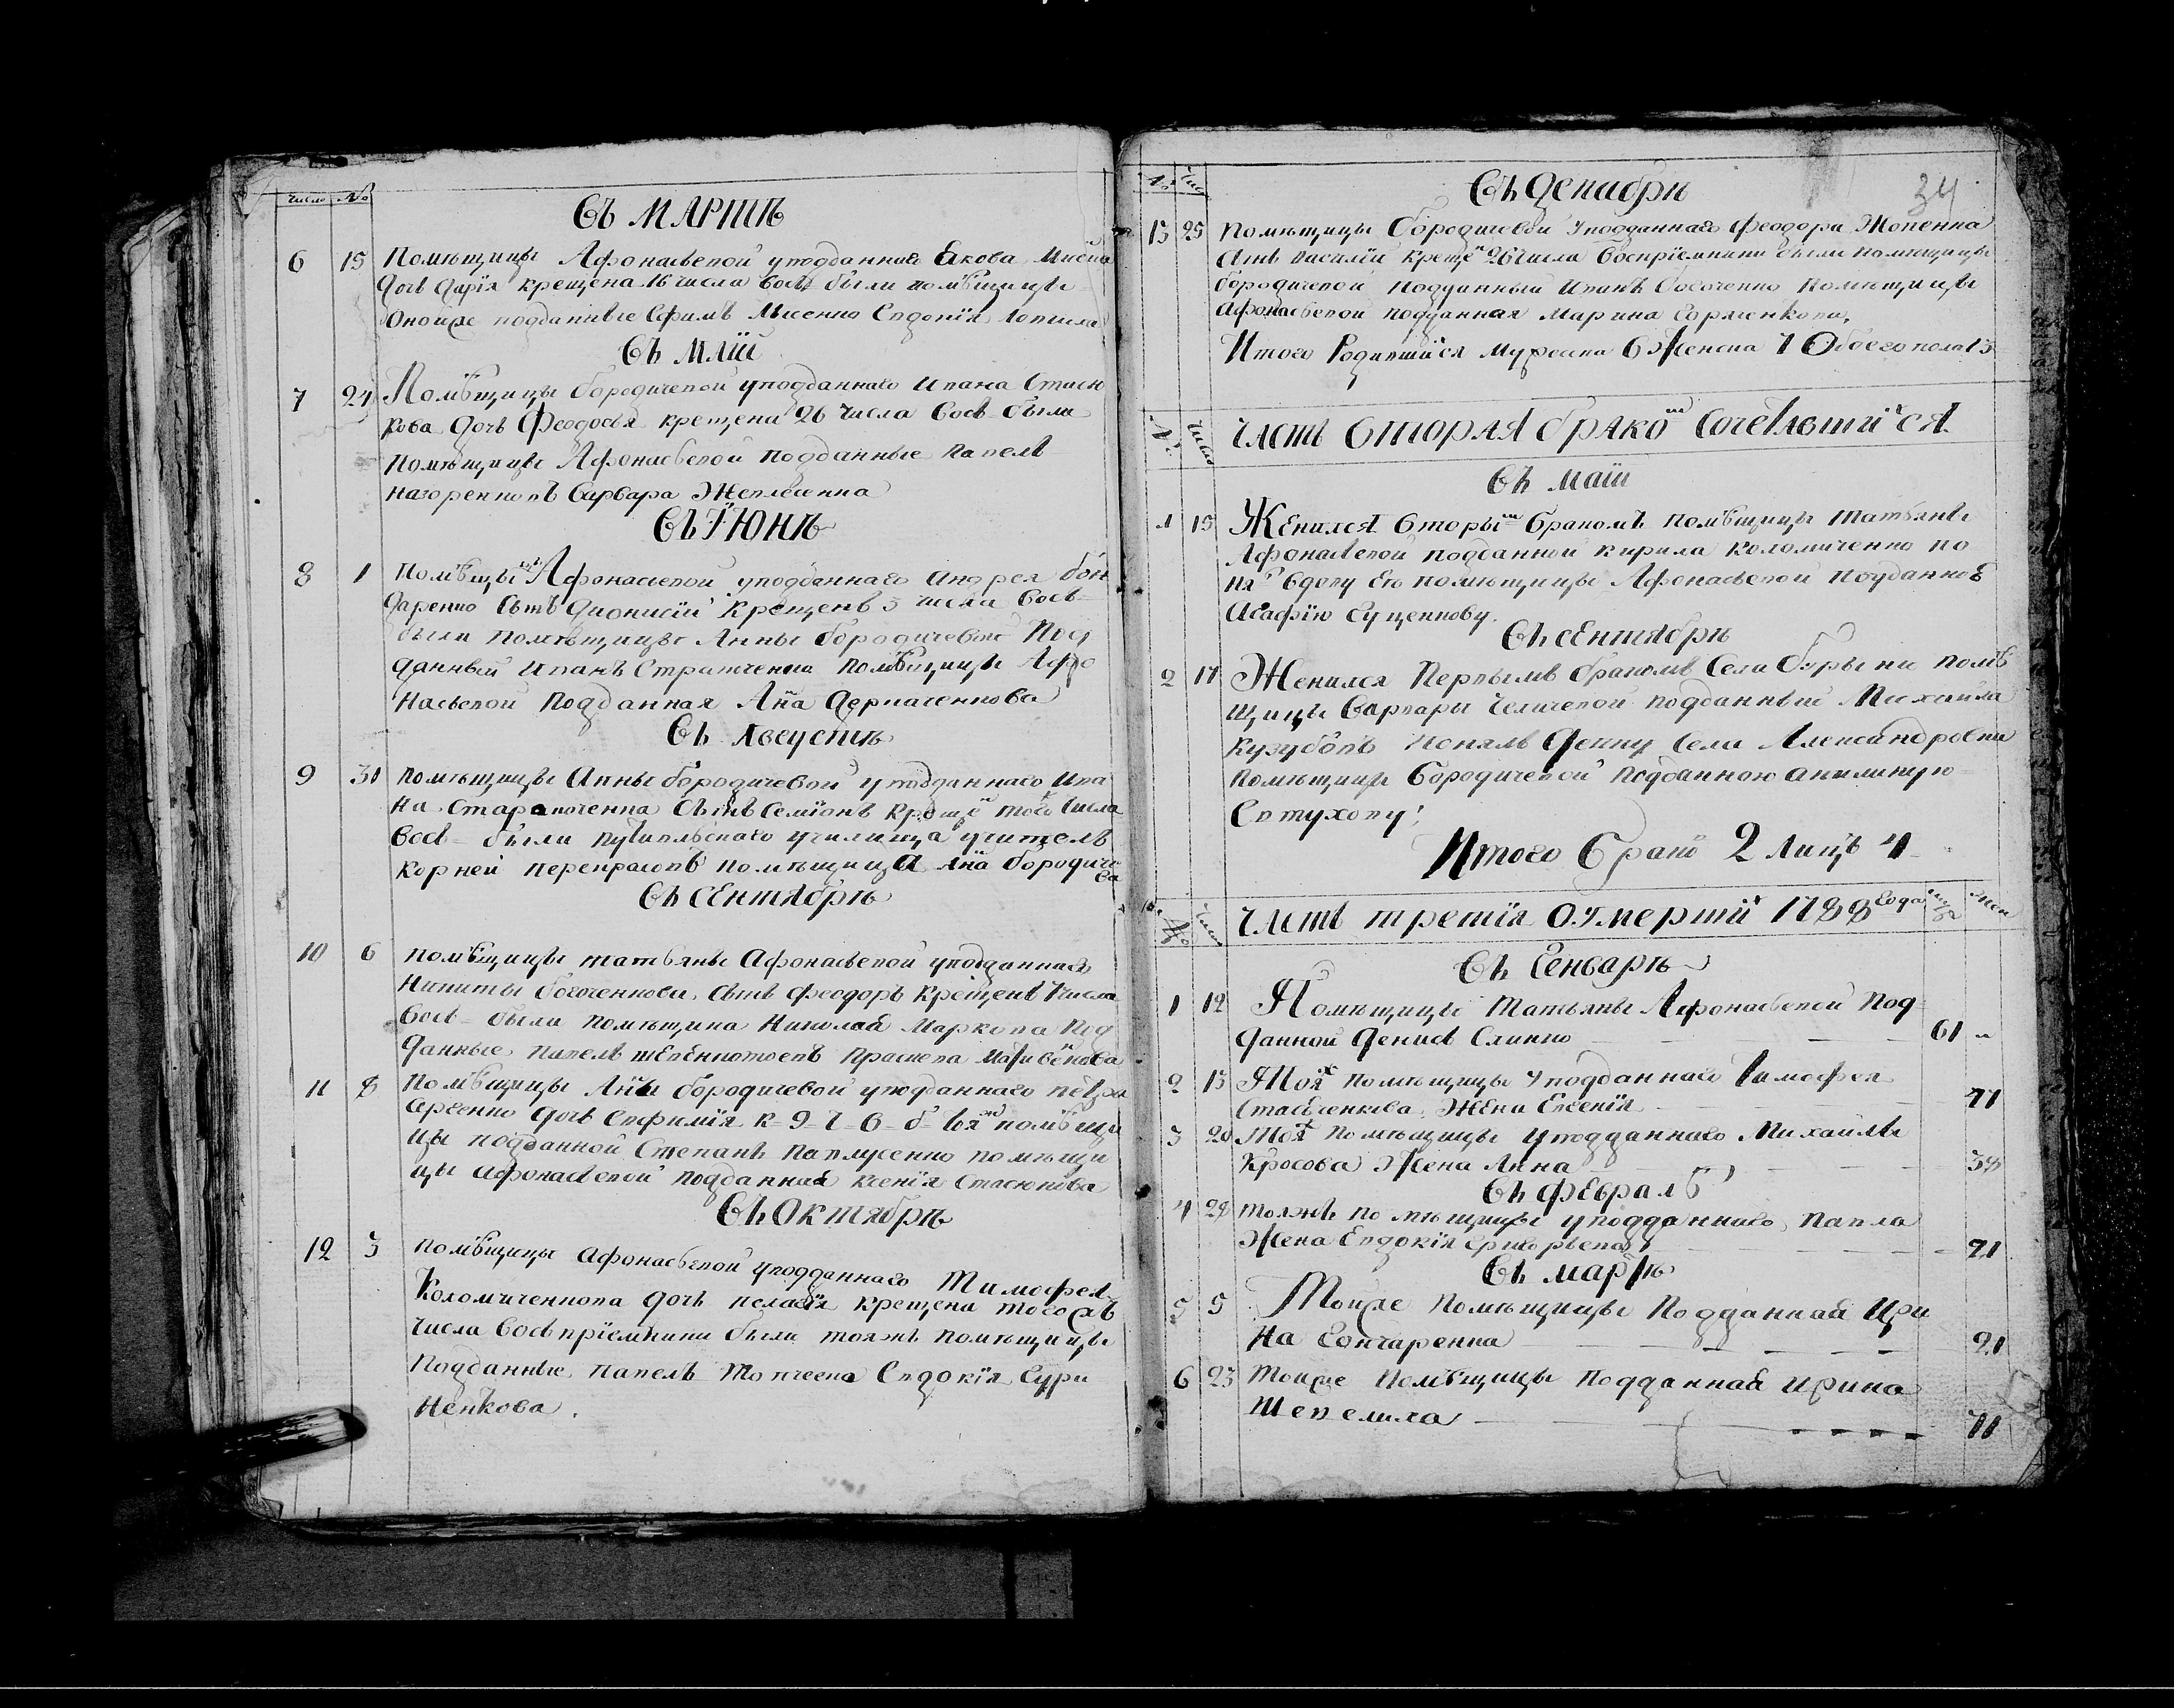 число №
Въ МАРТѢ
6 15 Помѣщицы Афонасьевой уподданнаго Якова
дочь Дарія крещена 16 числа восп были помѣщицы
Оной же подданные Ефимъ Лысенко Евдокія
Въ МАІИ
7 24 Помѣщицы бородичевой уподданнаго ивана Стасю
кова дочь Феодосья крещена 26 числа Восп были
Помѣщицы Афонасьевой подданные павелъ
Варвара
Въ ІЮНѢ
8 1 Помѣщицы Афонасьевой уподданнаго андрея бон
даренко сынъ Дионисій Крещенъ 3 числа Восп
были помѣщицы Анны бородичевой Под
данный иванъ Страт помѣщицы Афо
насьевой Подданная Анна
Въ Августѣ
9 31 помѣщицы Анны бородичевой уподданнаго ива
на сынъ Семіонъ Креще того числа
восп были путивльскаго училища учитель
Корней перекрасовъ помѣщица Анна бородиче
ва
Въ СЕнтябрѣ
10 6 помѣщицы татьяны Афонасьевой уподданнаго
Никиты сынъ феодоръ Крещенъ 7 числа
восп были помѣщика Николая Маркова Под
данные павелъ
11 8 Помѣщицы Анны бородичевой уподданнаго петра
Сергеенко дочь Евфимія к 9 ч В б тоя помѣщи
цы подданной Степанъ Павлусенко помѣщи
цы афонасьевой подданная ксенія Стасюкова
Въ Октябрѣ
12 3 помѣщицы афонасьевой уподданнаго Тимофея
Коломиченкова дочь пелагія крещена тогожъ
числа воспріемники были тояжъ помѣщицы
Подданные павелъ Евдокія Сури
ненкова.
№ число
Въ Декабрѣ
34
13 25 Помѣщицы бородичевой уподданнаго феодора
сынъ василій креще 26 числа воспріемники были помѣщицы
бородичевой подданный иванъ помѣщицы
афонасьевой подданная марина
Итого Родившися Мужеска 6 Женска 7 Обоего пола 13
№ число
часть вторая брако сочетавшися
Въ маіи
1 15 Женился вторы бракомъ помѣщицы татьяны
Афонасьевой подданной кирила коломиченко по
ня вдову Ею помѣщицы Афонасьевой подданнѣ
Агафію Сущенкову.
Въ сЕнтябрѣ
2 17 Женился Первымъ бракомъ Села бурыни помѣ
щицы Варвары подданный Михаила
кузубовъ понялъ девку Села Александровки
помѣщицы бородичевой подданною акилину
Евтухову
Итого Брако 2 Лицъ 4
№ число
часть третія О умершія 1788 Года муж жен
Въ Генварѣ
1 12 Помѣщицы Татьяны Афонасьевой Под
данной денисъ Слинко 61
2 13 Тояж помѣщицы уподданнаго Тимофея
Стасюченкова Жена Евгенія 71
3 20 Тояж помѣщицы уподданнаго Михаилы
Жена Анна 38
Въ ФЕвралѢ
4 28 тояжъ помѣщицы уподданнаго Павла
Жена Евдокія григорьева 21
Въ мартѣ
5 5 Тойже Помѣщицы Подданная Ири
на Гончаренка 21
6 23 Тойже Помѣщицы подданная ирина
Шепелиха 71